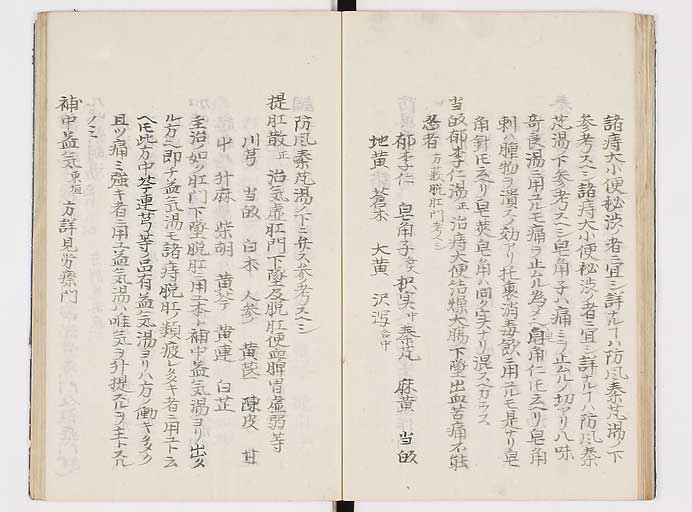 諸痔大小便秘渋ノ者ニ宜シ詳ナルヿハ防風秦芃湯ノ下
参考スヘシ諸痔大小便秘渋ノ者ニ宜シ詳ナルヿハ防風秦
芃湯ノ下参考スヘシ皂角子ハ痛ミヲ止ムルノ切アリ八味
奇良湯ニ用ユルモ痛ヲ止ムル為メシ皂角仁氏云ヘリ皂角
刺ハ腫物ヲ潰スノ効アリ托裏消毒飲ニ用ユルモ是ナリ皂
角針氏云ヘリ皂莢皂角ハ同ク実ナリ混スヘカラス
当皈郁李仁湯 正 治痔大便結燥大腸下墜出血苦痛不能
忍者 方薮脱肛門考ヘシ
郁李仁 皂角子 枳実 秦芃 麻黄 当皈
地黄 蒼朮 大黄 沢瀉
防風秦芃湯ノ下ニ弁ス参考スヘシ
提肛散 正 治気虚肛門下墜及脱肛便血脾胃虚弱等
川芎 当皈 白朮 人参 黄芪 陳皮 甘
中 升麻 柴胡 黄芩 黄連 白芷
主治ノ如ク肛門下墜脱肛ニ用ユ本ト補中益気湯ヨリ出タ
ル方ニ即チ益気湯モ諸痔脱肛ノ類疲レタキ者ニ用ユト云
ヘ氏此方中芩連芎等ノ品有益気湯ヨリハ方ノ働キタメク
且ツ痛ミ強キ者ニ用ユ益気湯ハ唯気ヲ升提スルヲ主トスル
ノミ
補中益気 東垣 方詳見労療門